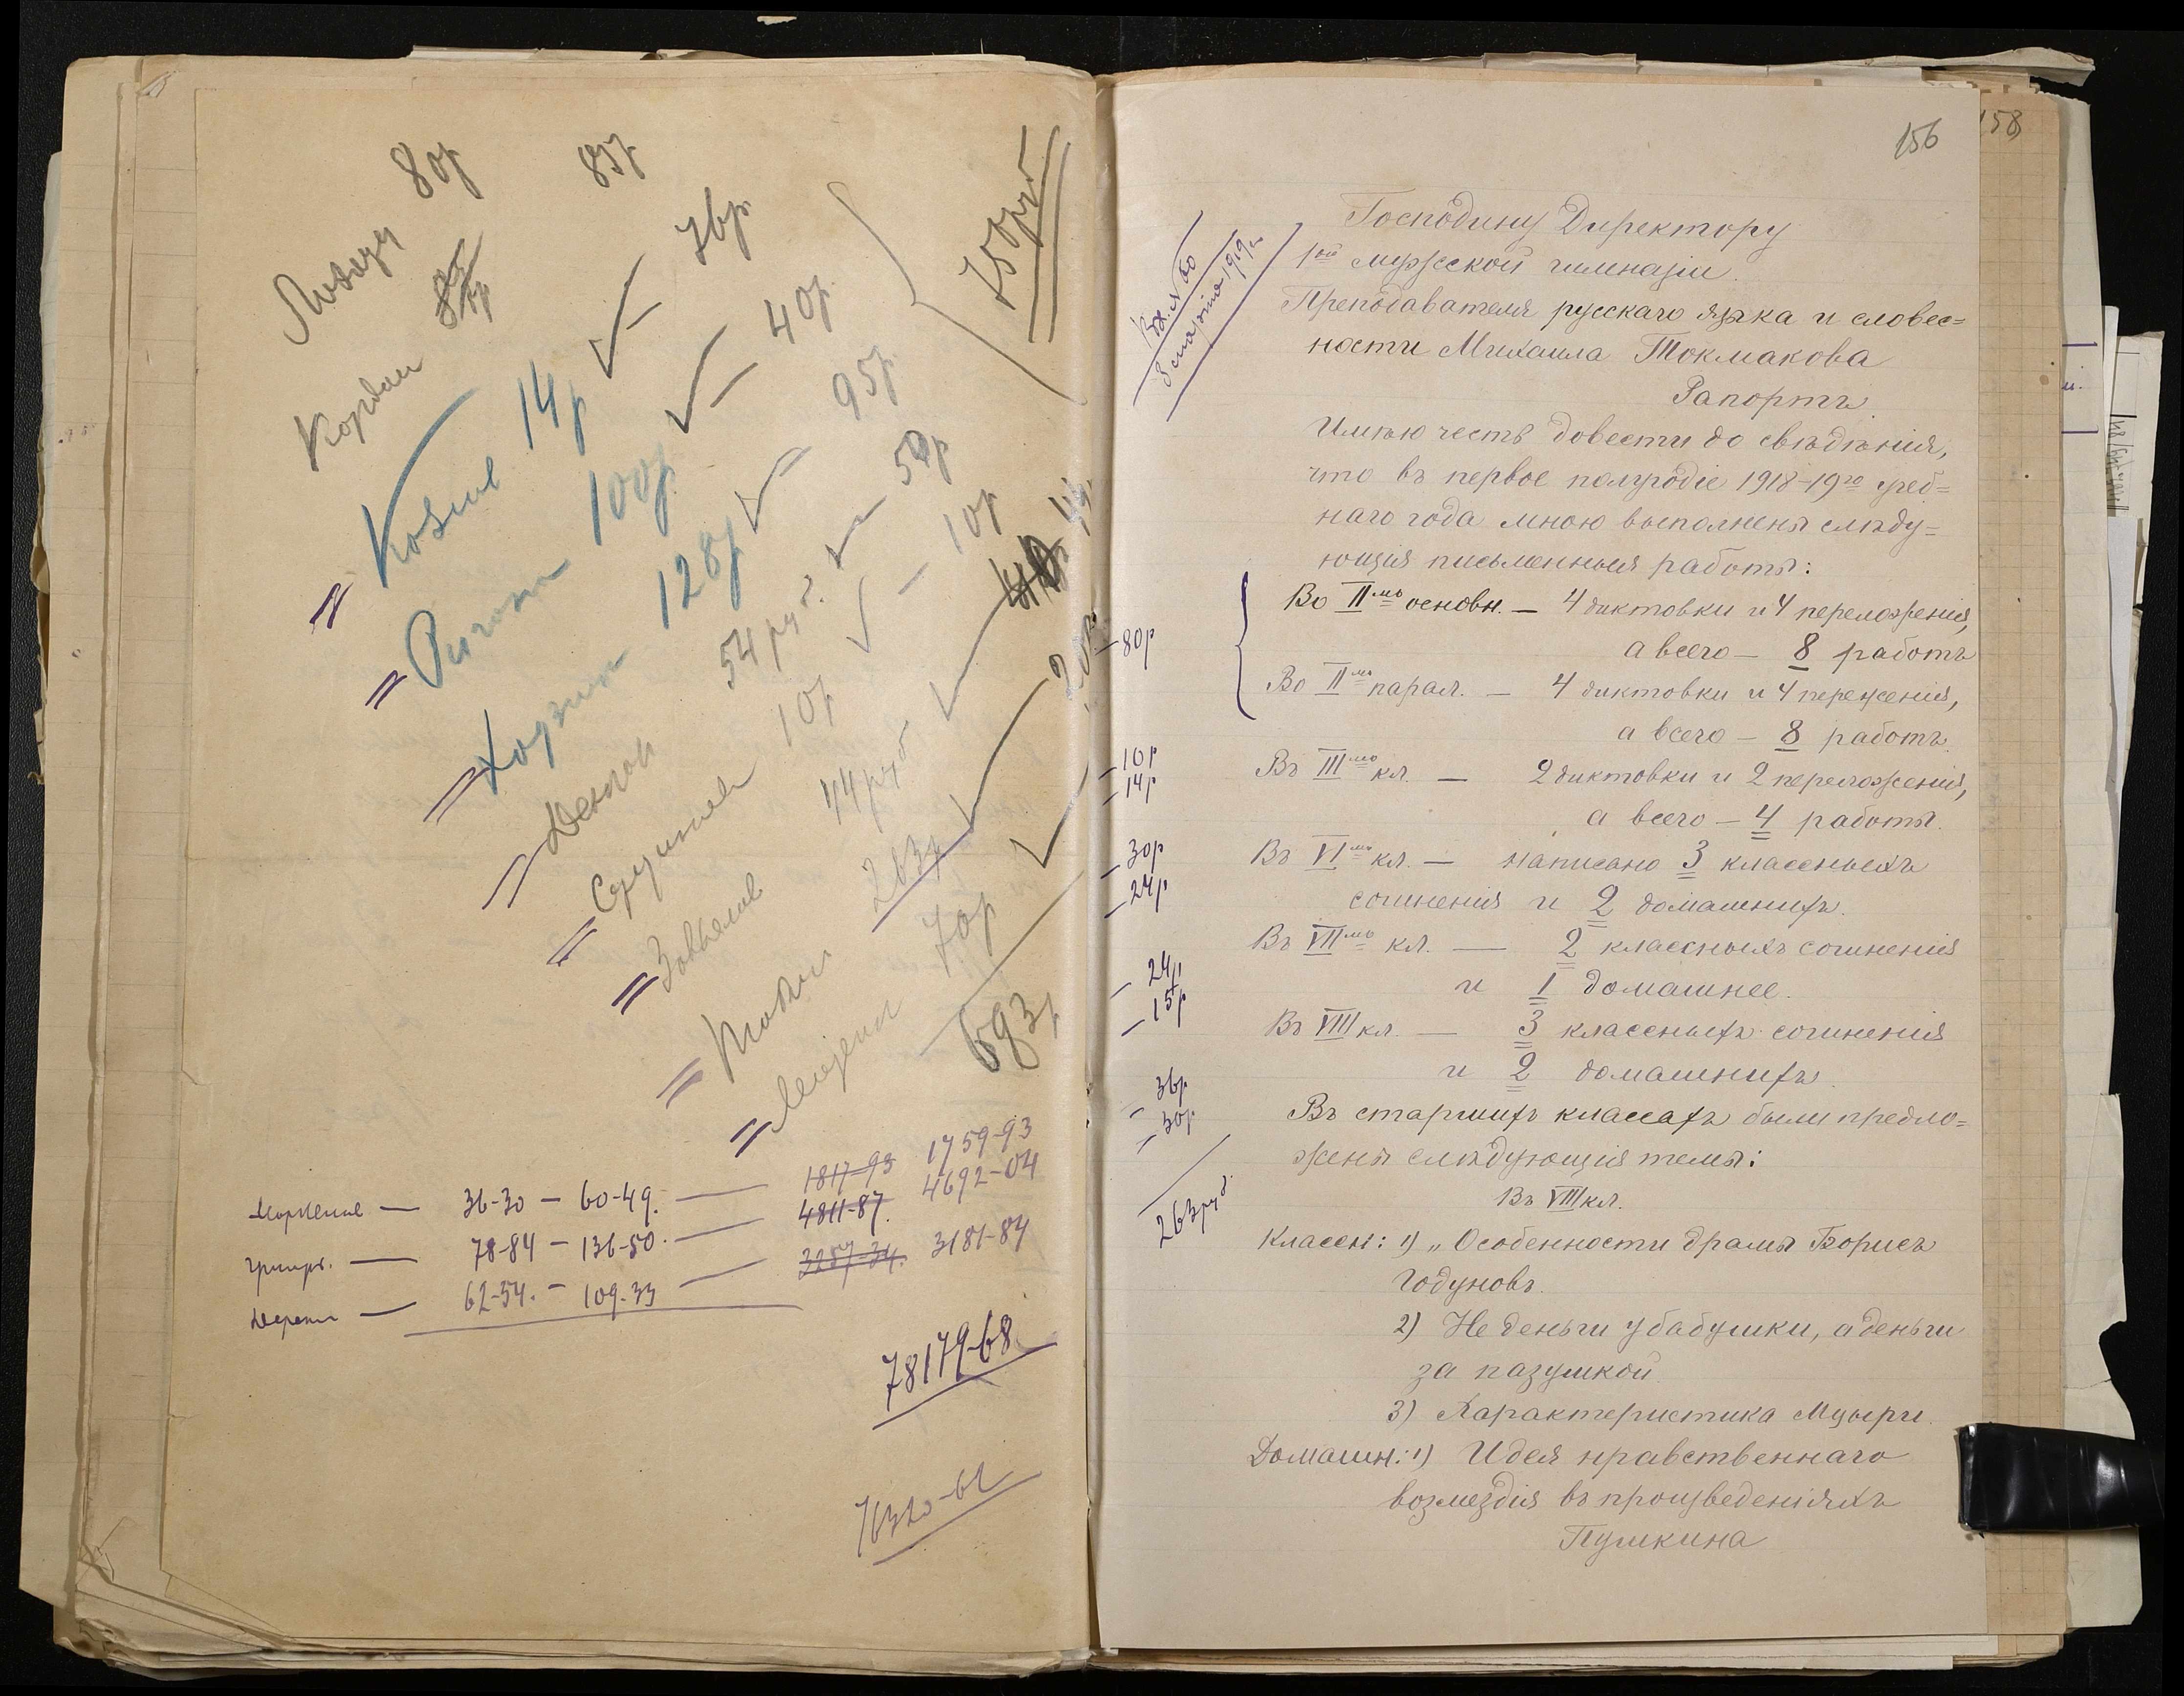 80р 85р
76р.
Козлов 14р
40р.
100р.
95р.
128р
50р
54 руб.
10р
10р
44 руб
20р.
263р
70р
693р
750руб
36-30 — 60-49. — 1817-93 1759-93
78-84 — 136-50. — 4811-87. 4692-04
62-54. — 109-33 — 3257-34. 3181-84
78179-68
156
158
Вх. № 60
8 марта 1919 г.
Господину Директору
1ой мужской гимназіи.
Преподавателя русскаго языка и словес=
ности Михаила Токмакова
Рапортъ.
Имѣю честь довести до свѣдѣнія,
что въ первое полугодіе 1918-19го учеб=
наго года мною выполнены слѣду=
ющія письменныя работы:
Во IIмъ основн. — 4 диктовки и 4 переложенія,
80р
а всего — 8 работъ
Во IIмъ парал. — 4 диктовки и 4 переженія,
а всего — 8 работъ.
10р
Въ IIIмъ кл. — 2 диктовки и 2 переложенія,
14р
а всего — 4 работы.
30р
Въ VIмъ кл. — написано 3 классныхъ
24р
сочиненія и 2 домашнихъ.
Въ VIIмъ кл. — 2 классныхъ сочиненія
24р
и 1 домашнее.
15р
Въ VIII кл. — 3 классныхъ сочиненія
и 2 домашнихъ.
36р
30р
Въ старшихъ классахъ были предло=
жены слѣдующія темы:
263руб.
Въ VIII кл.
Классн: 1) „Особенности драмы Борисъ
Годуновъ.
2) Не деньги у бабушки, а деньги
за пазушкой.
3) Характеристика Мцыри.
Домашн: 1) Идея нравственнаго
возмездія въ произведеніяхъ
Пушкина